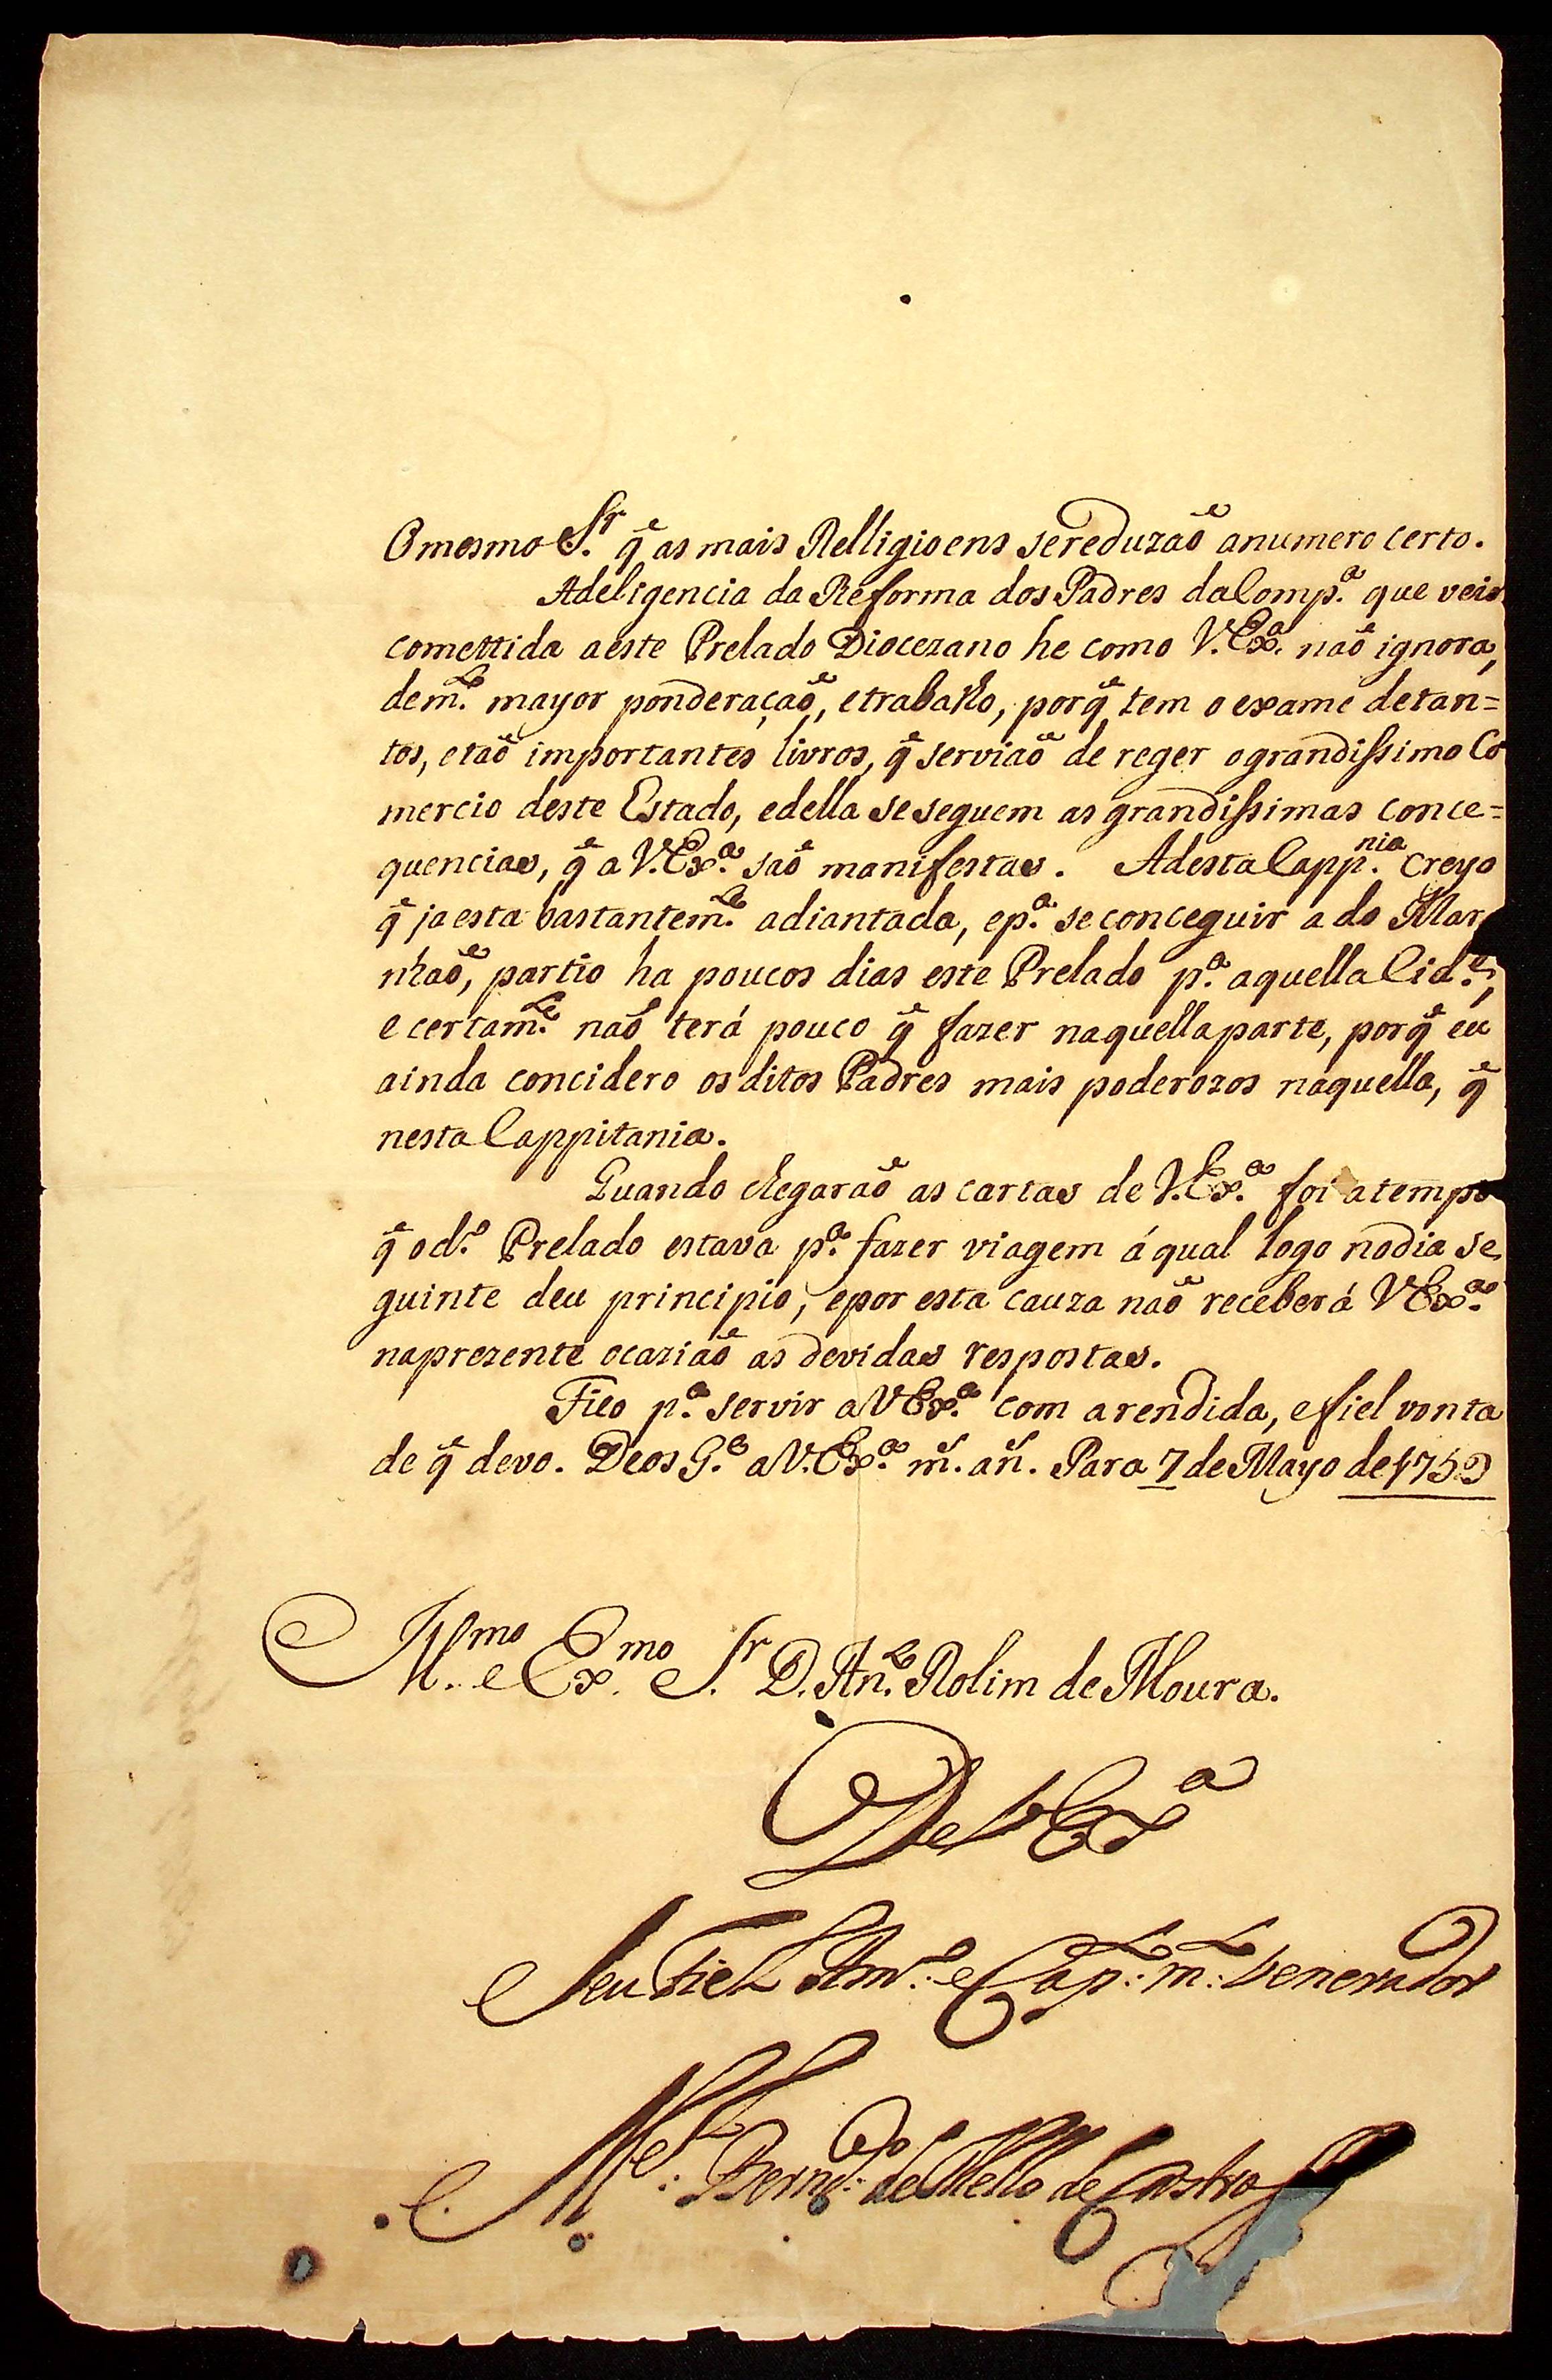 O mesmo Sr. q̃ as mais Relligioens se reduzaõ a numero certo.
A deligencia da Reforma dos Padres da Comp.ª que veio
comettida a este Prelado Diocezano he como V. Ex.ª naõ ignora,
de m.to mayor ponderaçaõ, e trabalho, porq̃ tem o exame de tan=
tos, e taõ importantes livros, q̃ serviaõ de reger o grandissimo Co
mercio deste Estado, e della se seguem as grandissimas conce=
quencias, q̃ a V. Ex.ª saõ manifestas. A desta Capp.nia creyo
q̃ ja esta bastantem.te adiantada, e p.ª se conceguir a do Mar
nhaõ, partio ha poucos dias este Prelado p.ª aquella Cid.e,
e certam.te naõ terá pouco q̃ fazer naquella parte, porq̃ eu
ainda concidero os ditos Padres mais poderozos naquella, q̃
nesta Cappitania.
Quando chegaraõ as cartas de V. Ex.ª foi a tempo
q̃ o d.º Prelado estava p.ª fazer viagem á qual logo no dia se
guinte deu principio, e por esta cauza naõ receberá V Ex.ª
na prezente ocaziaõ as devidas respostas.
Fico p.ª servir a V Ex.ª com a rendida, e fiel vonta
de q̃ devo. Deos G.e a V. Ex.ª m.s an.s Para 7 de Mayo de 1759
Ill.mo e Ex.mo Sr. D. An.to Rolim de Moura.
De V Ex.ª
Seu Fiel Am.º e Cap.to m.to Venerador
M.el Bernd.º de Mello de Castro